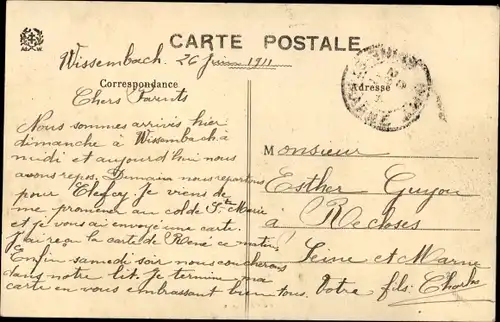 CARTE POSTALE
Wissembach 26 Juin 1911
Correspondance
Adresse
Chers Parents
Nous sommes arrivés hier
dimanche à Wissembach à
midi et aujourd'hui nous
avons repos. Demain nous repartons
pour . Je viens de
me promener au col de Ste Marie
et je vous ai envoyé une carte.
J'ai reçu la carte de René ce matin
Enfin samedi soir nous coucherons
dans notre lit. Je termine ma
carte en vous embrassant bien tous. Votre fils. Charles
Monsieur
Esther Guyou
à Recloses
Seine et Marne